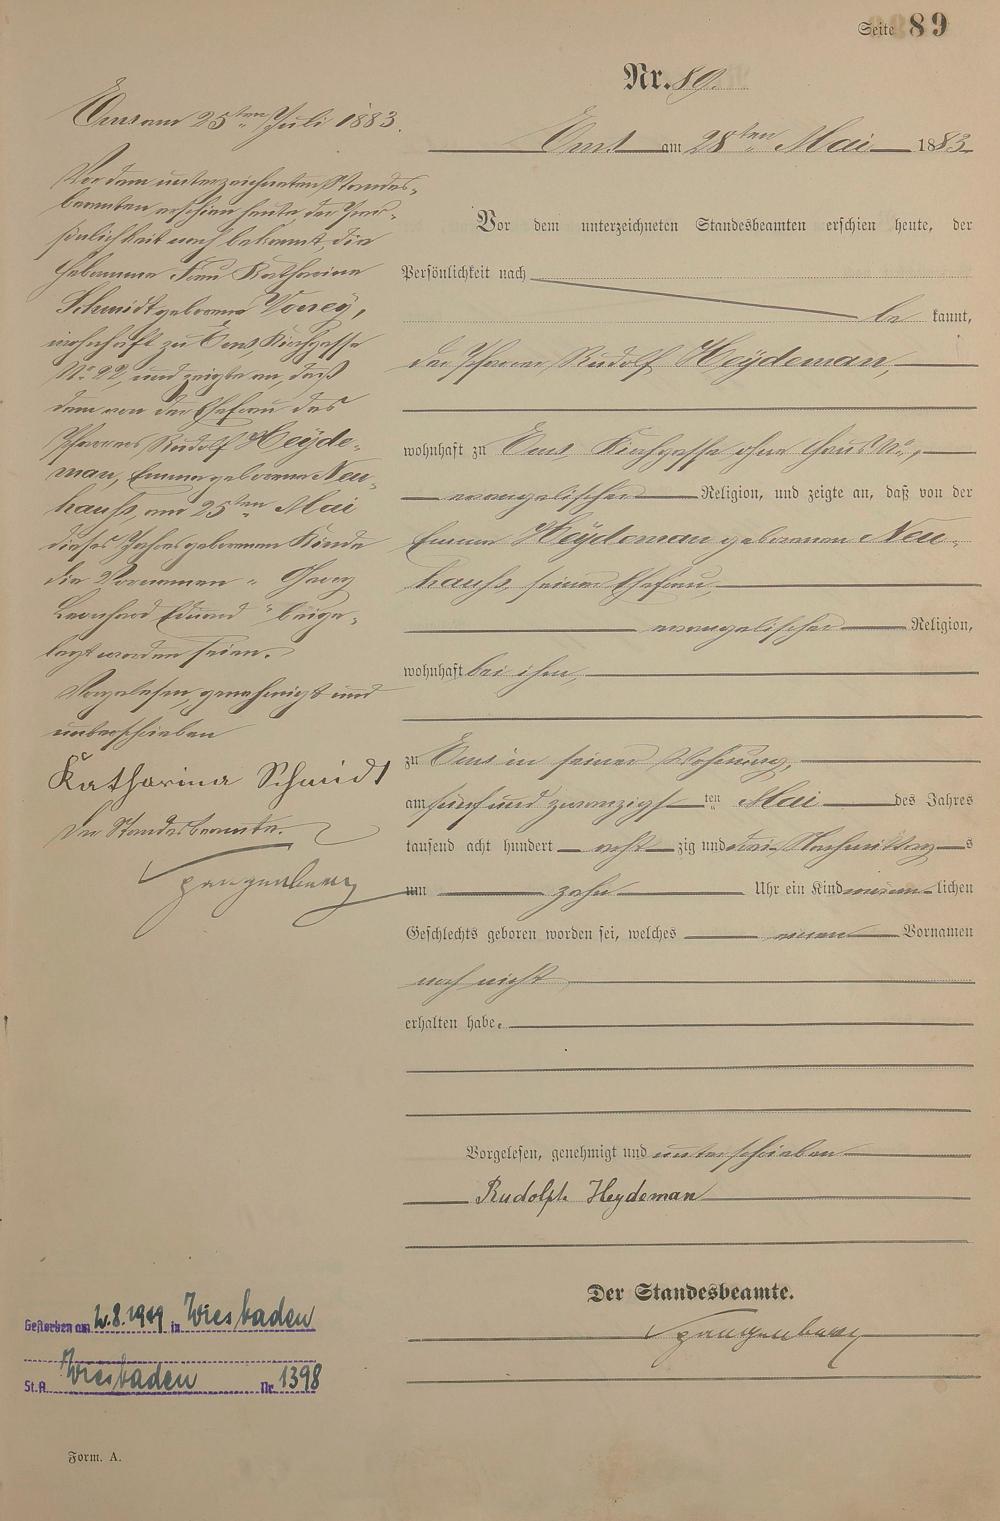 Seite 89
Nr. 89.
Ems am 28ten Mai 1883.
Vor dem unterzeichneten Standesbeamten erschien heute, der
Persönlichkeit nach
be kannt,
der Pfarrer Rudolf Heÿdeman,
wohnhaft zu Ems, Kirchgasse ohne Haus No.,
evangelischer Religion, und zeigte an, daß von der
Emma Heÿdeman geborenen Neu-
hauß, seiner Ehefrau,
evangelischer Religion,
wohnhaft bei ihm,
zu Ems in seiner Wohnung,
am fünf und zwanzigsten Mai des Jahres
tausend acht hundert acht zig und drei Nachmittags
um zehn Uhr ein Kind männlichen
Geschlechts geboren worden sei, welches einen Vornamen
noch nicht
erhalten habe.
Vorgelesen, genehmigt und unterschrieben
Rudolph Heydeman
Der Standesbeamte.
Spangenberg
Ems am 25ten Juli 1883.
Vor dem unterzeichneten Standes-
beamten erschien heute der Per-
sönlichkeit nach bekannt, die
Hebamme Frau Katharina
Schmidt geborene
wohnhaft zu Ems, Kirchgasse
No. 22, und zeigte an, daß
dem von der Ehefrau des
Pfarrers Rudolf Heÿde-
man, Emma geborene Neu-
hauß, am 25ten Mai
dieses Jahres geborenen Kinde
die Vornamen „Georg
Leonhard Eduard" beige-
legt worden seien.
Vorgelesen, genehmigt und
unterschrieben
Katharina Schmidt
Der Standesbeamte.
Spangenberg
Gestorben am 2.8.1949 in Wiesbaden
St.A. Wiesbaden Nr. 1398
Form. A.